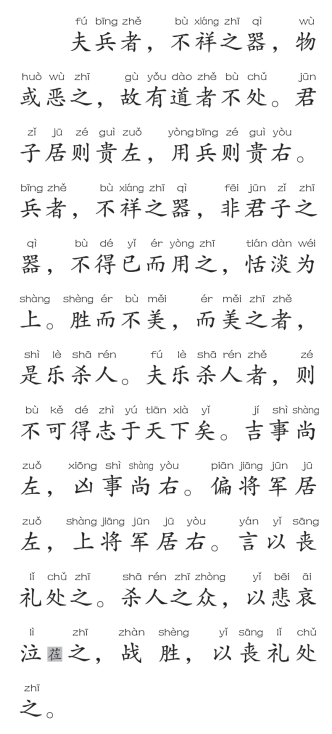 fú bīng zhě bù xiáng zhī qì wù
夫兵者，不祥之器，物
huò wù zhī gù yǒu dào zhě bù chǔ jūn
或恶之，故有道者不处。君
zǐ jū zé guì zuǒ yòng bīng zé guì yòu
子居则贵左，用兵则贵右。
bīng zhě bù xiáng zhī qì fēi jūn zǐ zhī
兵者，不祥之器，非君子之
qì bù dé yǐ ér yòng zhī tián dàn wéi
器，不得已而用之，恬淡为
shàng shèng ér bù měi ér měi zhī zhě
上。胜而不美，而美之者，
shì lè shā rén fú lè shā rén zhě zé
是乐杀人。夫乐杀人者，则
bù kě dé zhì yú tiān xià yǐ jí shì shàng
不可得志于天下矣。吉事尚
zuǒ xiōng shì shàng yòu piān jiāng jūn jū
左，凶事尚右。偏将军居
zuǒ shàng jiāng jūn jū yòu yán yǐ sāng
左，上将军居右。言以丧
lǐ chǔ zhī shā rén zhī zhòng yǐ bēi āi
礼处之。杀人之众，以悲哀
lì zhī zhàn shèng yǐ sāng lǐ chǔ
泣莅之，战胜，以丧礼处
zhī
之。